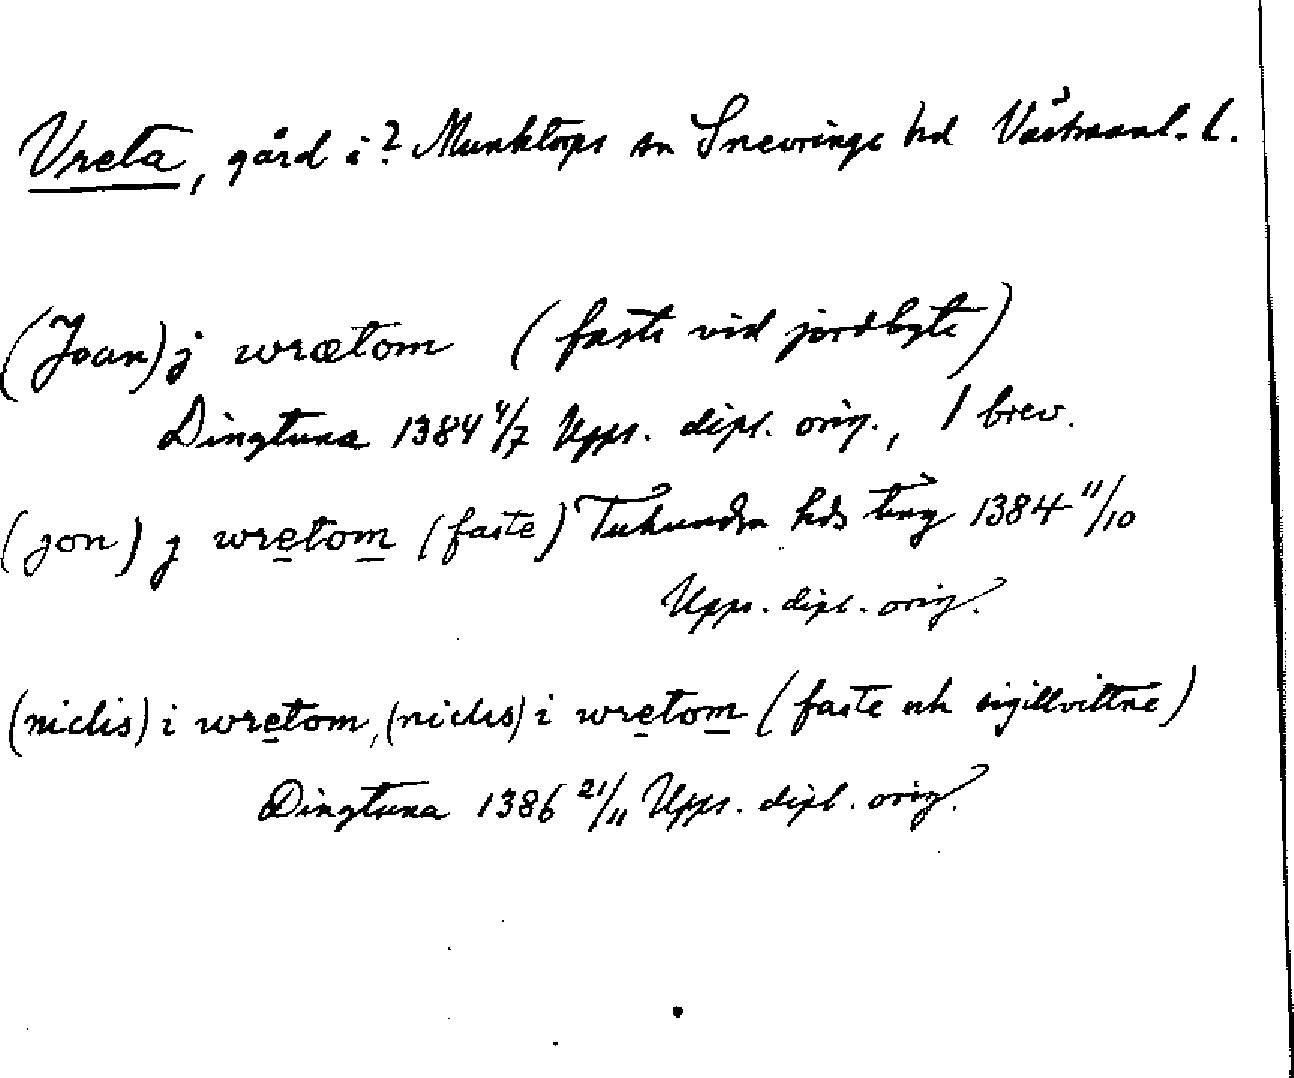 Vreta, gård i? Munktorps sn Snevringe hd Västmanl. l.
(Joan) j wrætom (faste vid jordbyte)
Dingtuna 1384 4/7 Upps. dipl. orig., 1 brev.
(jon) j wrętom (faste) Tuhundra hds ting 1384 11/10
Upps. dipl. orig.
(niclis) i wrętom, (niclis) i wrętom (faste och sigillvittne)
Dingtuna 1386 21/11 Upps. dipl. orig.